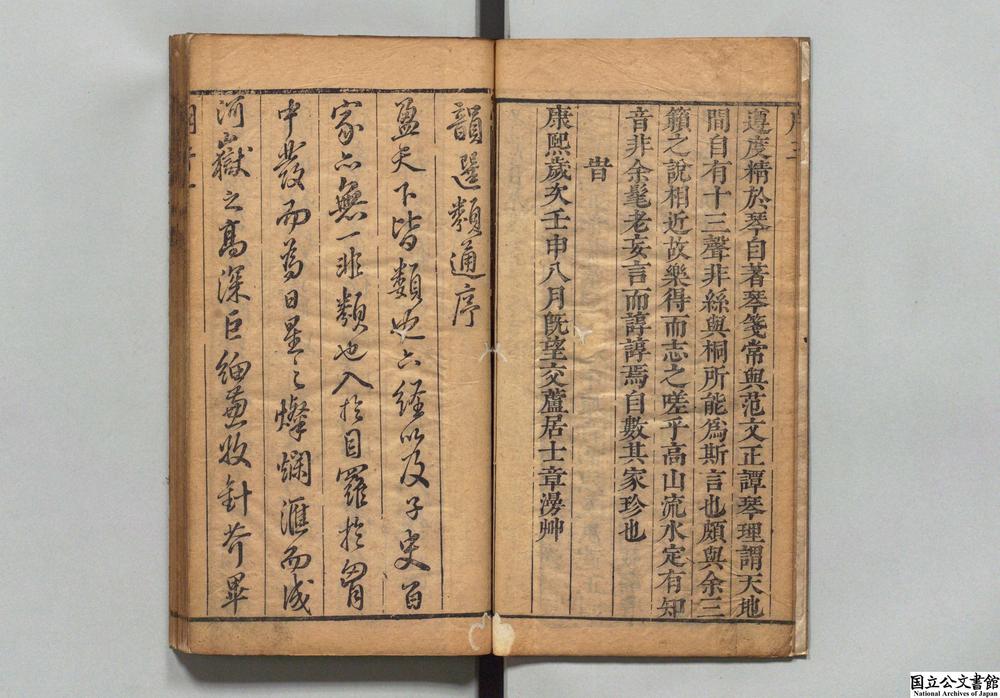 遵度精於琴自著琴箋常與范文正譚琴理謂天地
間自有十三聲非絲與桐所能為斯言也頗與余三
籟之說相近故樂得而志之嗟乎高山流水定有知
音非余髦老妄言而諄諄焉自數其家珍也
旹
康熙歲次壬申八月旣望交蘆居士章澇艸
韻選類通序
盈天下皆類也六經以及子史百
家亦無一非類也入於目羅於胷
中發而為日星之燦爛滙而成
河嶽之高深巨細兼收針芥畢
国立公文書館
National Archives of Japan